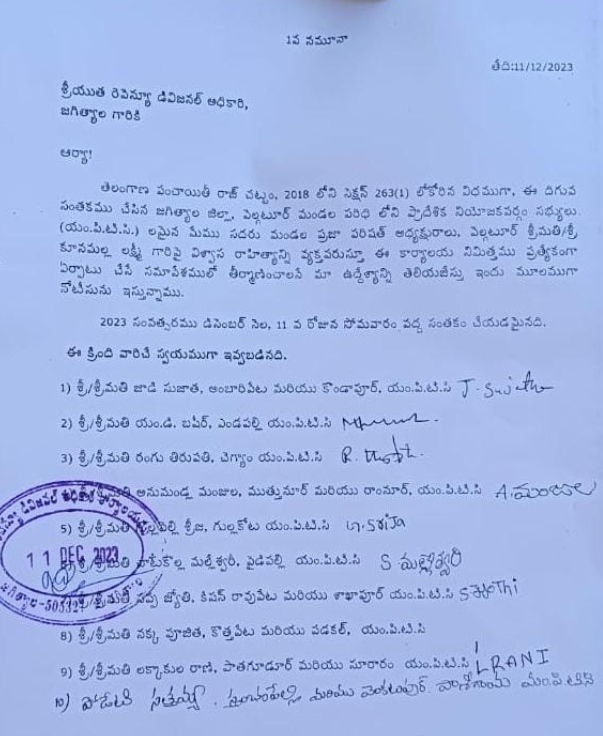 1వ నమూనా
తేది:11/12/2023
శ్రీయుత రెవెన్యూ డివిజనల్ అధికారి,
జగిత్యాల గారికి
ఆర్యా!
తెలంగాణ పంచాయితీ రాజ్ చట్టం, 2018 లోని సెక్షన్ 263(1) లోకోరిన విధముగా, ఈ దిగువ
సంతకము చేసిన జగిత్యాల జిల్లా, వెల్గటూర్ మండల పరిధి లోని ప్రాదేశిక నియోజకవర్గం సభ్యులు
(యం.పి.టి.సి.) లమైన మేము సదరు మండల ప్రజా పరిషత్ అధ్యక్షురాలు, వెల్గటూర్ శ్రీమతి/శ్రీ
కూనమల్ల లక్ష్మి గారిపై విశ్వాస రాహిత్యాన్ని వ్యక్తపరుస్తూ ఈ కార్యాలయ నిమిత్తము ప్రత్యేకంగా
ఏర్పాటు చేసే సమావేశములో తీర్మాణించాలనే మా ఉద్దేశ్యాన్ని తెలియజేస్తు ఇందు మూలముగా
నోటీసును ఇస్తున్నాము.
2023 సంవత్సరము డిసెంబర్ నెల, 11 వ రోజున సోమవారం వద్ద సంతకం చేయడమైనది.
ఈ క్రింది వారిచే స్వయముగా ఇవ్వబడినది.
1) శ్రీ/శ్రీమతి జాడి సుజాత, అంబారిపేట మరియు కొండాపూర్, యం.పి.టి.సి J. Sujatha
2) శ్రీ/శ్రీమతి యం.డి. బషీర్, ఎండపల్లి యం.పి.టి.సి
3) శ్రీ/శ్రీమతి రంగు తిరుపతి, చెగ్యాం యం.పి.టి.సి R.
అనుమండ్ల మంజుల, ముత్తునూర్ మరియు రాంనూర్, యం.పి.టి.సి A. మంజుల
5) శ్రీ/శ్రీమతి శ్రీజ, గుల్లకోట యం.పి.టి.సి G. Srija
11 DEC 2023 మల్లేశ్వరి, పైడిపల్లి యం.పి.టి.సి S మల్లేశ్వరి
జగిత్యాల-505327 శ్రీ/శ్రీమతి సప్ప జ్యోతి, కిషన్ రావుపేట మరియు శాఖాపూర్ యం.పి.టి.సి S Jyothi
8) శ్రీ/శ్రీమతి నక్క పూజిత, కొత్తపేట మరియు పడకల్, యం.పి.టి.సి
9) శ్రీ/శ్రీమతి లక్కాకుల రాణి, పాతగూడూర్ మరియు సూరారం యం.పి.టి.సి L RANI
10) పోడేటి సత్తమ్మ. మరియు వెంకటాపూర్.